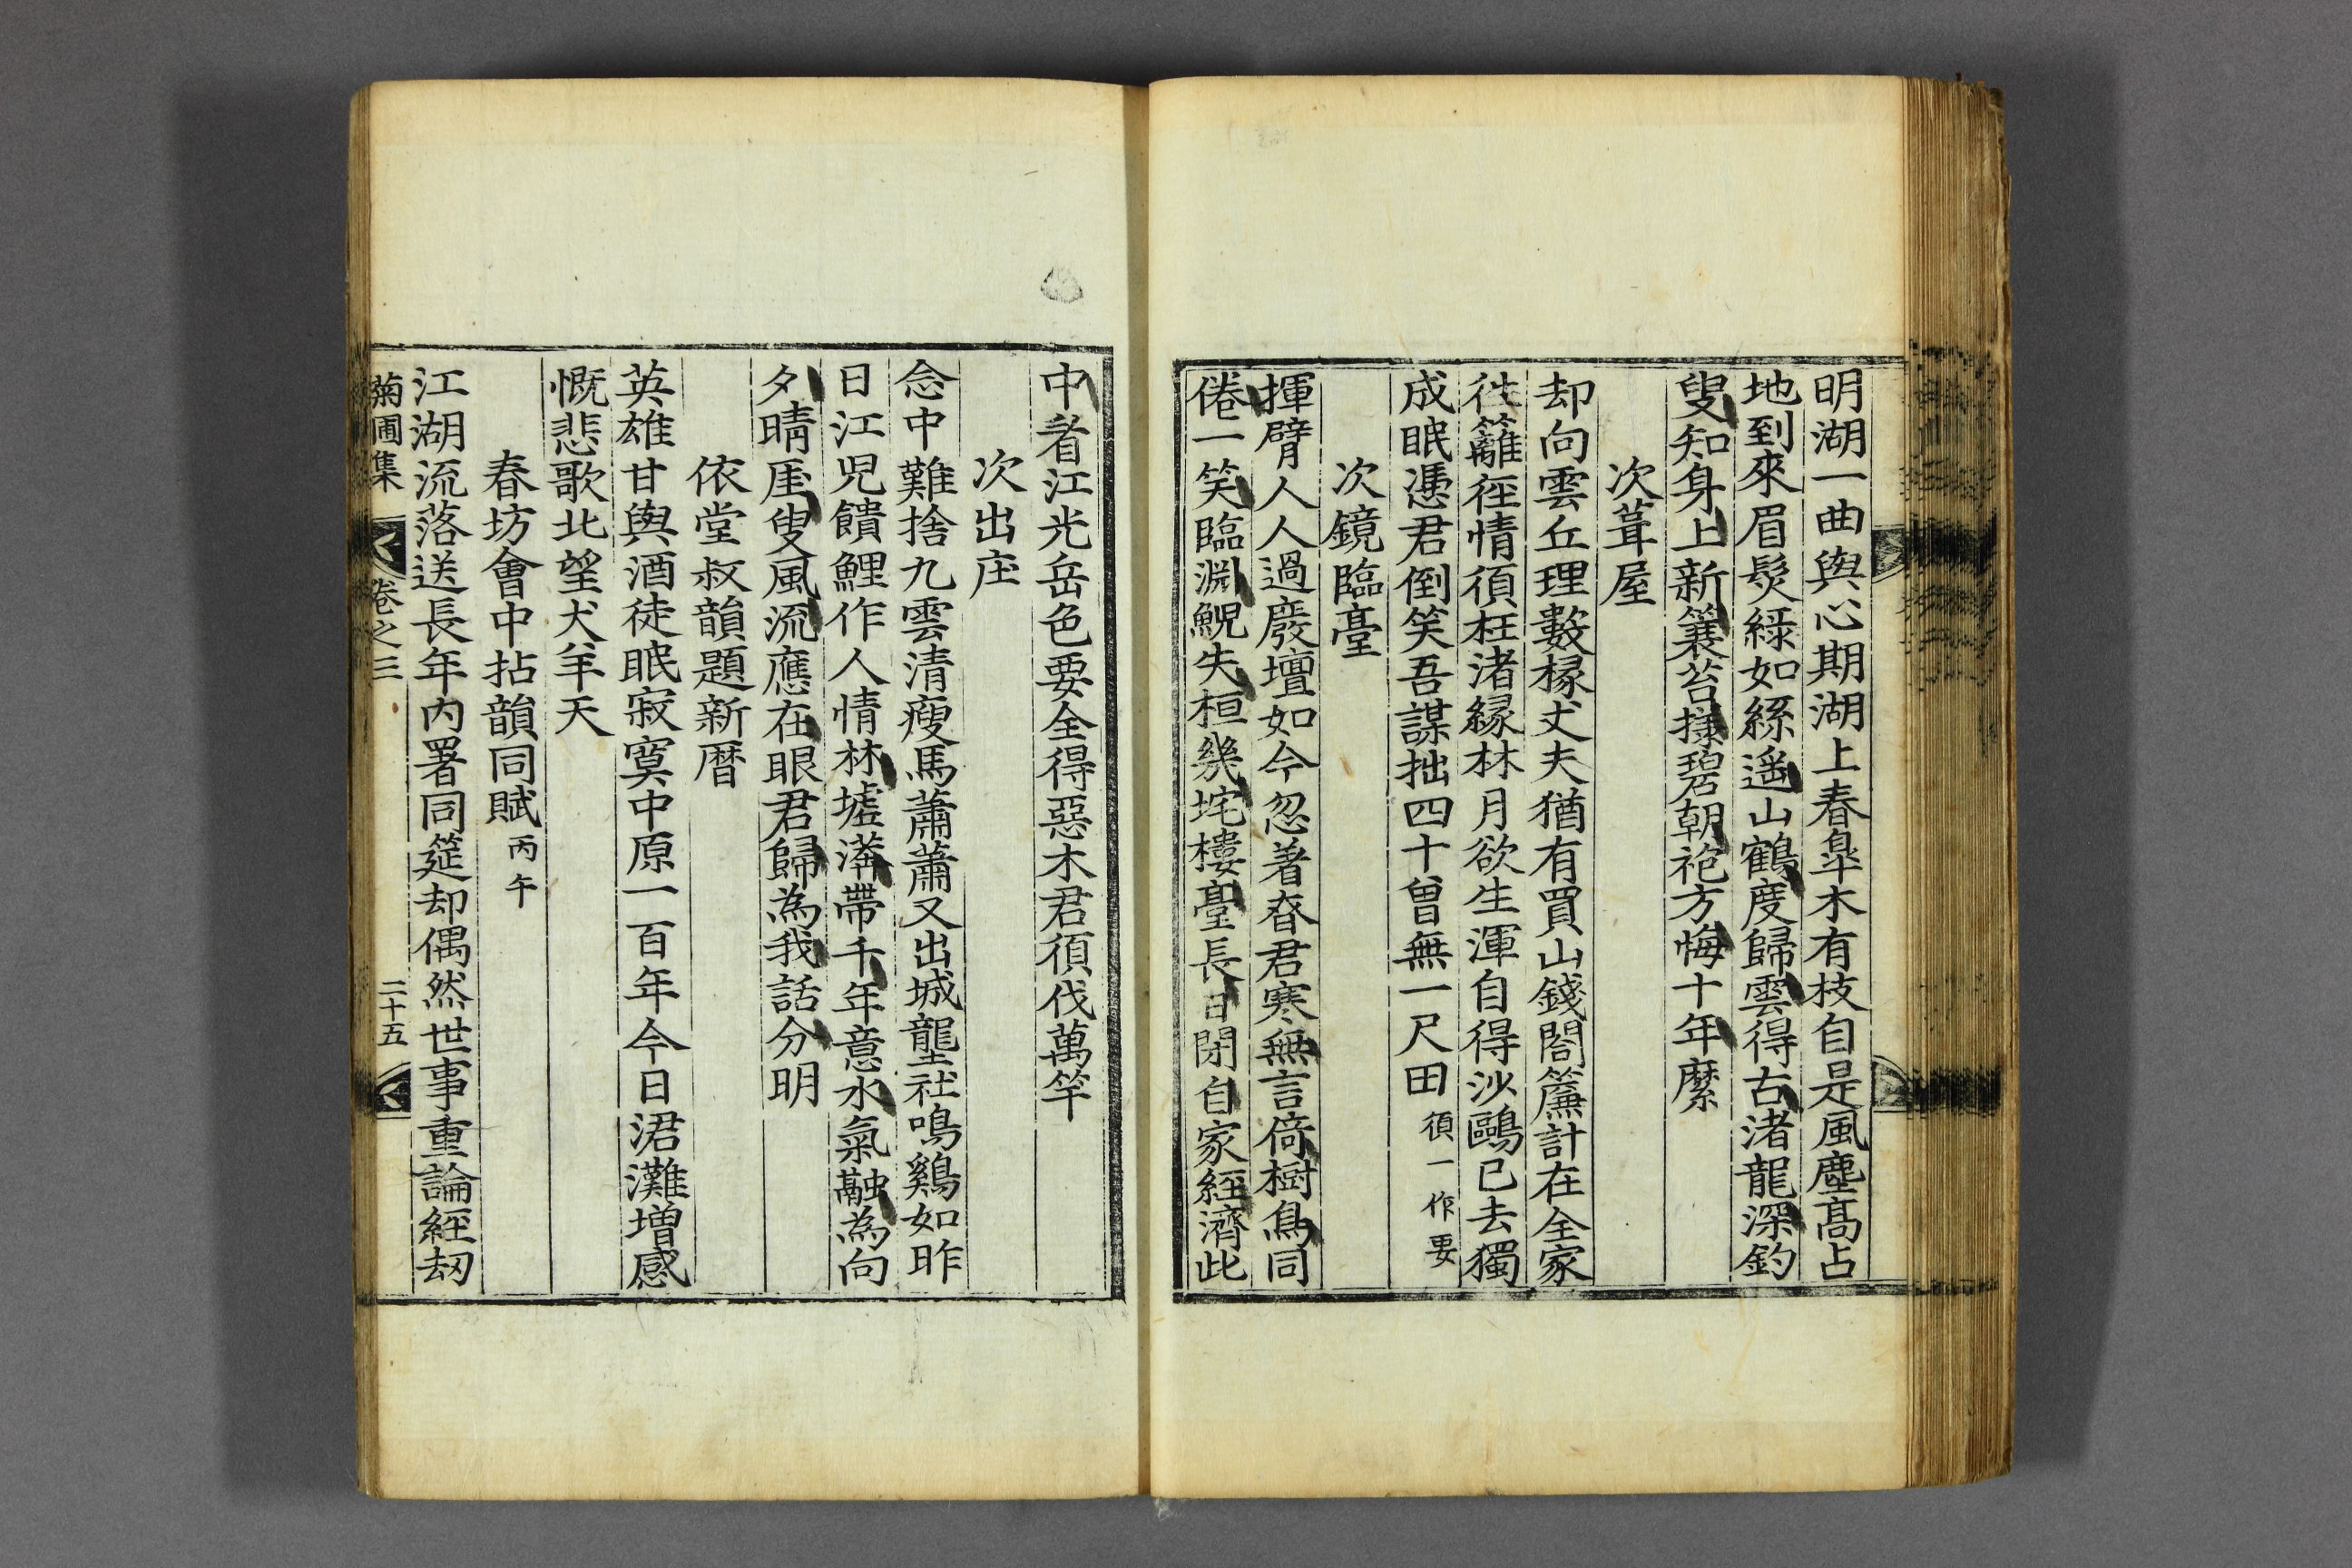 明湖一曲與心期湖上春皐木有枝自是風塵髙占
地到來眉髮綠如絲遥山鶴度歸雲得古渚龍深釣
叟知身上新簑苔㨾碧朝袍方悔十年縻
次葺屋
却向雲丘理數椽丈夫猶有買山錢閤簾計在全家
徃籬徑情須枉渚緣林月欲生渾自得沙鷗已去獨
成眠憑君倒笑吾謀拙四十曾無一尺田 須一作要
次鏡臨臺
揮臂人人過廢壇如今忽着夲君寒無言倚樹鳥同
倦一笑臨淵鯢失桓幾垞樓臺長日閉自家經濟此
中着江光岳色要全得惡木君須伐萬竿
次出庄
念中難捨九雲清瘦馬蕭蕭又出城壟社鳴鷄如昨
日江児饋鯉作人情林墟滿帶千年意水氣融為向
夕晴厓叟風流應在眼君歸為我話分明
依堂叔韻題新曆
英雄甘與酒徒眠寂寞中原一百年今日涒灘増感
慨悲歌北望犬羊天
春坊會中拈韻同賦 丙午
江湖流落送長年内署同筵却偶然世事重論經刼
菊圃集 卷之三 二十五